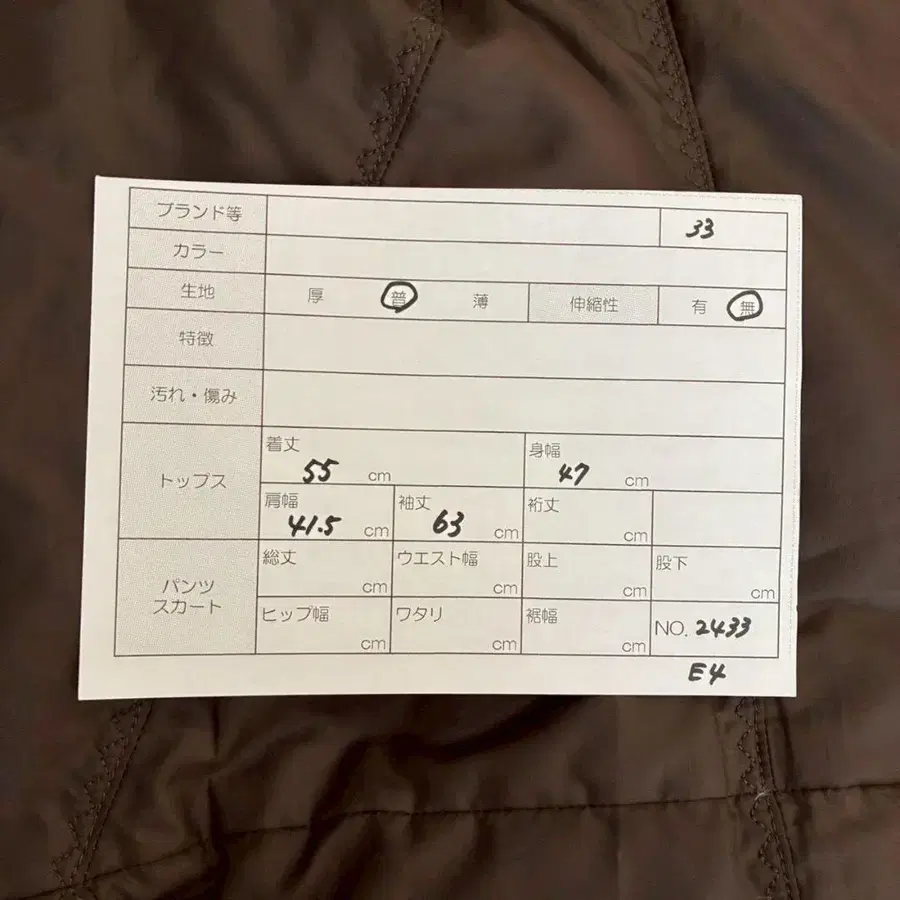 ブランド等 33
カラー
生地 厚 普 薄 伸縮性 有 無
特徴
汚れ・傷み
トップス
着丈 55 cm 身幅 47 cm
肩幅 41.5 cm 袖丈 63 cm 裄丈 cm
パンツ
スカート
総丈 cm ウエスト幅 cm 股上 cm 股下 cm
ヒップ幅 cm ワタリ cm 裾幅 cm NO. 2433
E4